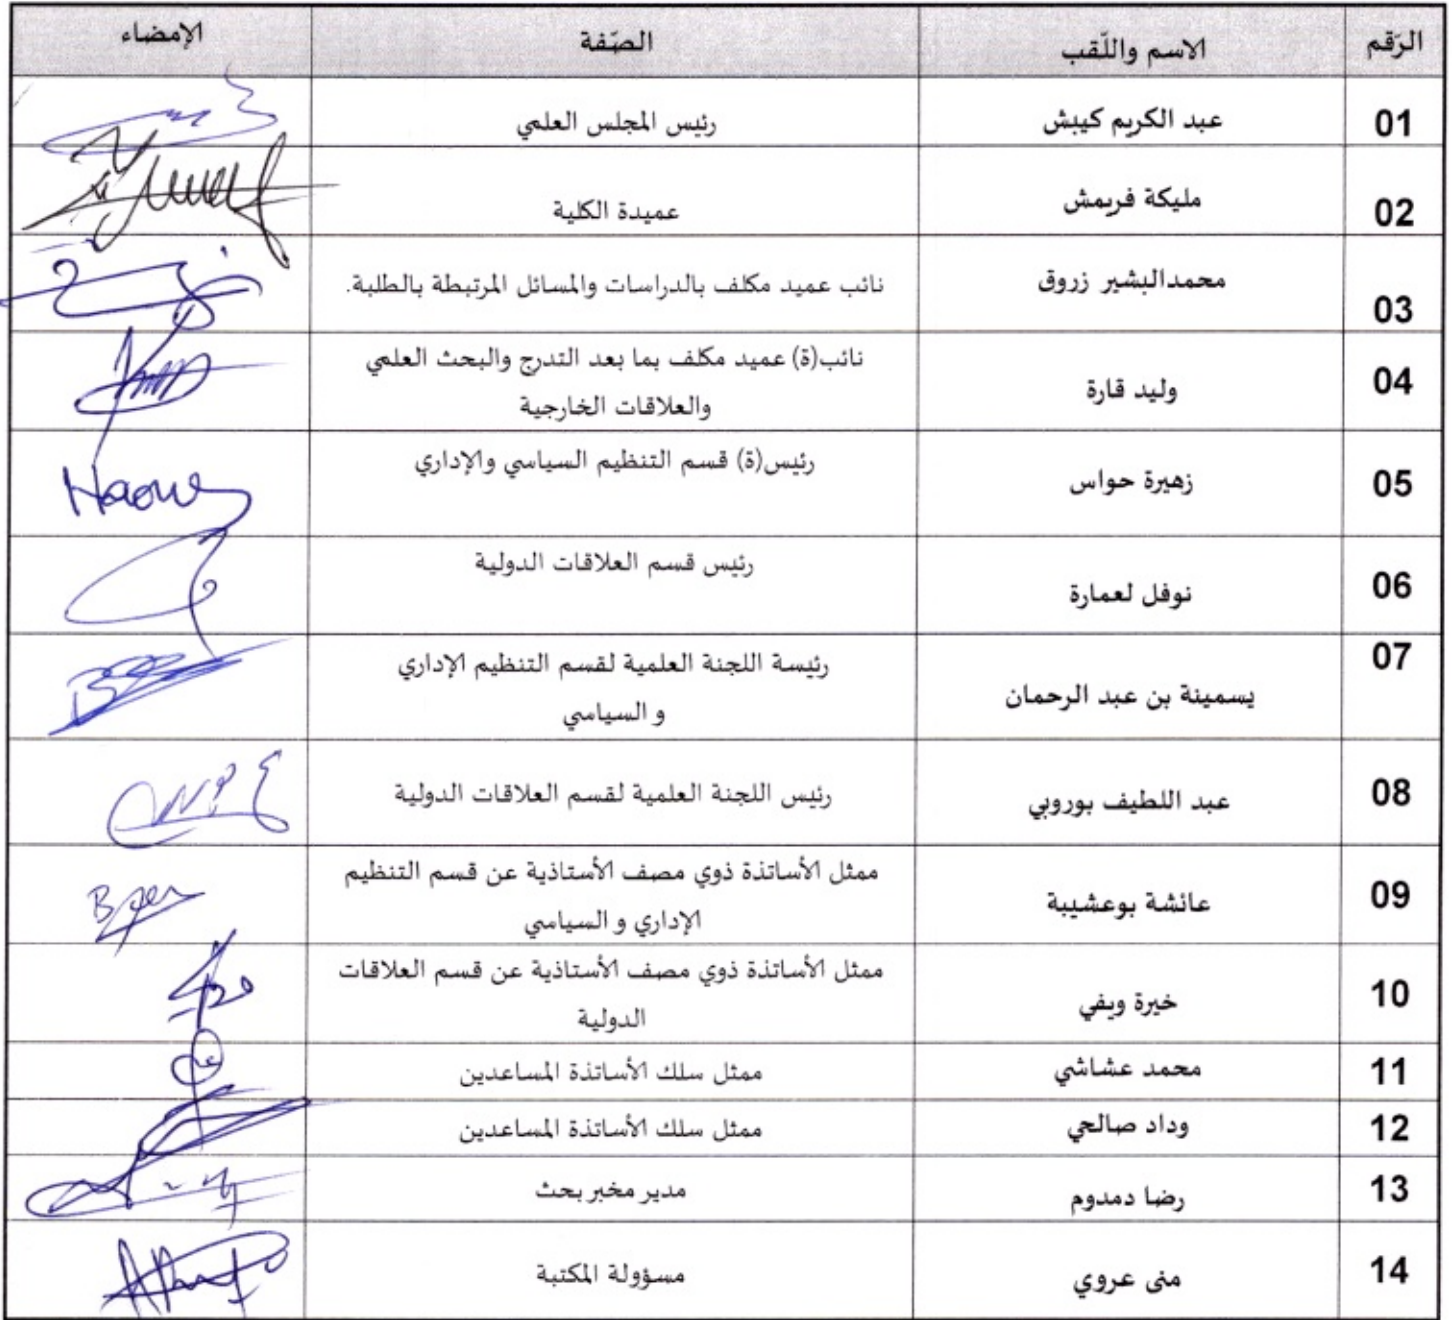 الرّقم الاسم واللّقب الصّفة الإمضاء
01 عبد الكريم كيبش رئيس المجلس العلمي
02 مليكة فريمش عميدة الكلية
03 محمدالبشير زروق نائب عميد مكلف بالدراسات والمسائل المرتبطة بالطلبة.
04 وليد قارة نائب(ة) عميد مكلف بما بعد التدرج والبحث العلمي
والعلاقات الخارجية
05 زهيرة حواس رئيس(ة) قسم التنظيم السياسي والإداري
06 نوفل لعمارة رئيس قسم العلاقات الدولية
07 يسمينة بن عبد الرحمان رئيسة اللجنة العلمية لقسم التنظيم الإداري
و السياسي
08 عبد اللطيف بوروبي رئيس اللجنة العلمية لقسم العلاقات الدولية
09 عائشة بوعشيبة ممثل الأساتذة ذوي مصف الأستاذية عن قسم التنظيم
الإداري و السياسي
10 خيرة ويفي ممثل الأساتذة ذوي مصف الأستاذية عن قسم العلاقات
الدولية
11 محمد عشاشي ممثل سلك الأساتذة المساعدين
12 وداد صالحي ممثل سلك الأساتذة المساعدين
13 رضا دمدوم مدير مخبر بحث
14 منى عروي مسؤولة المكتبة